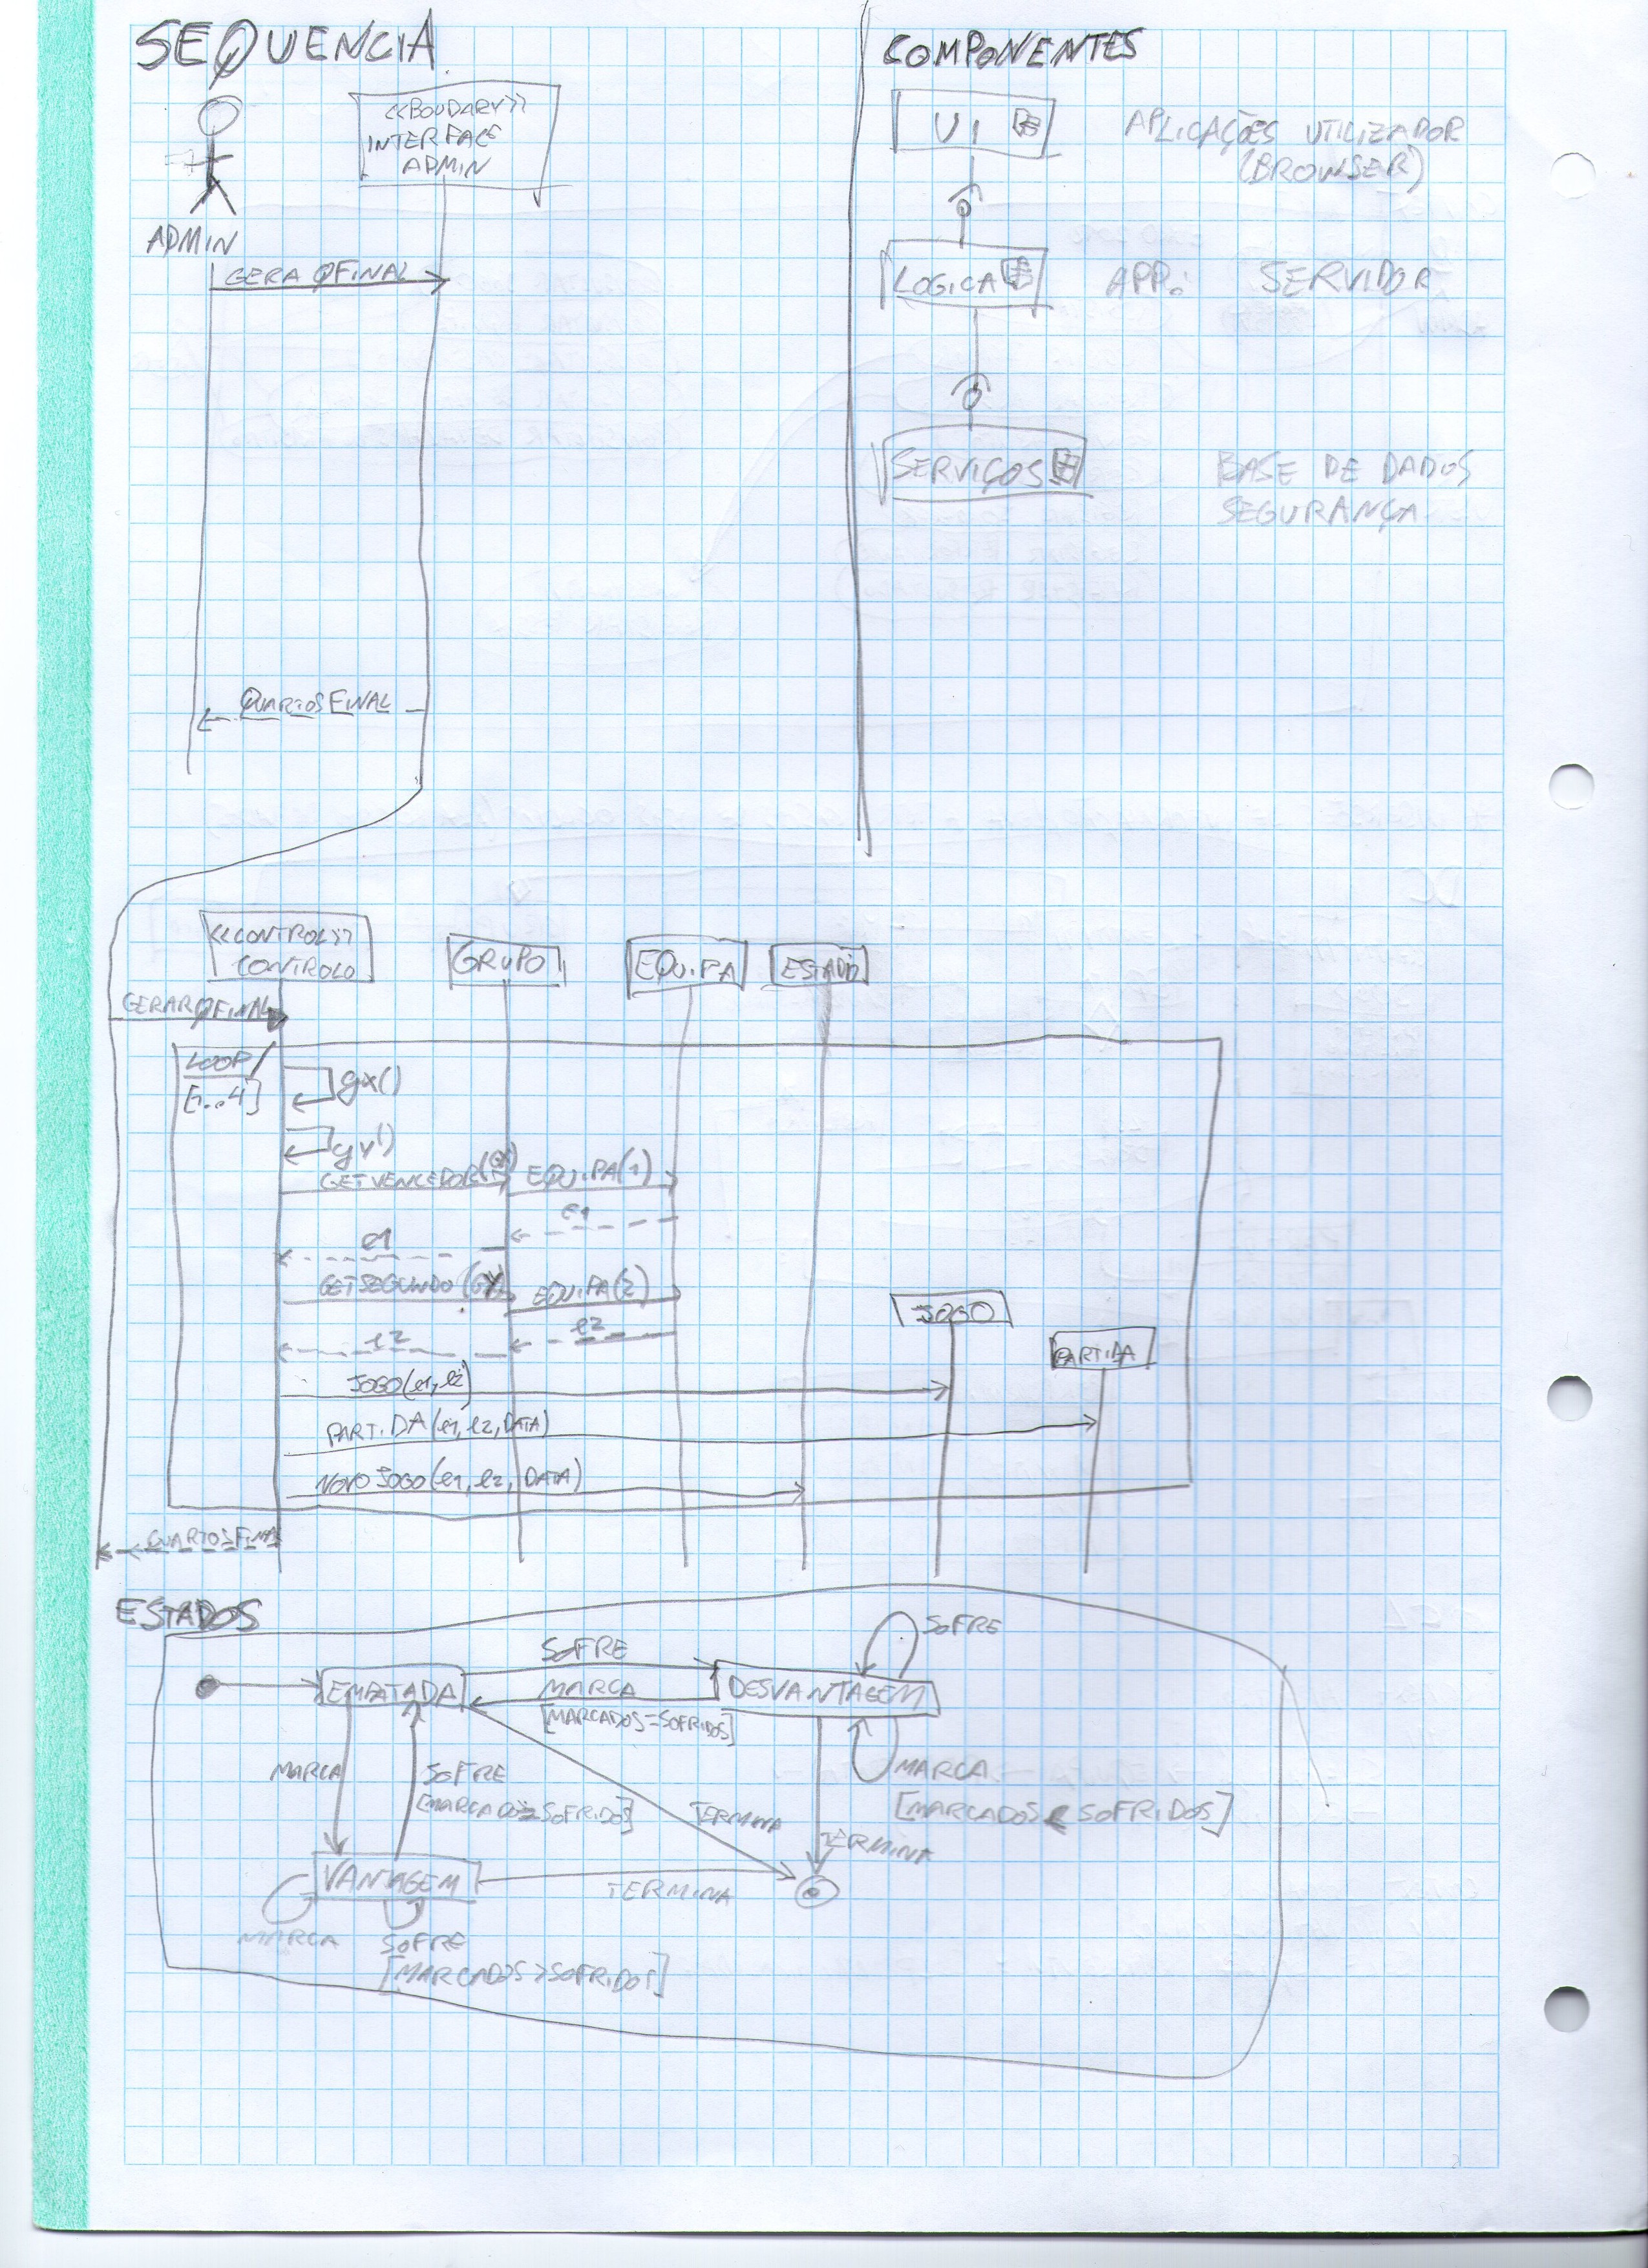 SEQUENCIA
<<BOUDARY>>
INTERFACE
ADMIN
ADMIN
GERA QFINAL
QUARTOSFINAL
COMPONENTES
UI
APLICAÇÕES UTILIZADOR
(BROWSER)
LOGICA
APP. SERVIDOR
SERVIÇOS
BASE DE DADOS
SEGURANÇA
<<CONTROL>>
CONTROLO
GRUPO
EQUIPA
GERARQFINAL
LOOP
[1..4]
gx()
gy()
GETVENCEDOR(GX)
EQUIPA(1)
e1
e1
GETSEGUNDO(GY)
EQUIPA(2)
e2
e2
JOGO
PARTIDA
JOGO(e1,e2)
PARTIDA(e1,e2,DATA)
NOVOJOGO(e1,e2,DATA)
QUARTOSFINAL
ESTADOS
SOFRE
SOFRE
EMPATADA
MARCA
DESVANTAGEM
[MARCADOS=SOFRIDOS]
MARCA
SOFRE
[MARCADOS=SOFRIDOS]
TERMINA
MARCA
[MARCADOS<SOFRIDOS]
TERMINA
VANTAGEM
TERMINA
MARCA
SOFRE
[MARCADOS>SOFRIDOS]